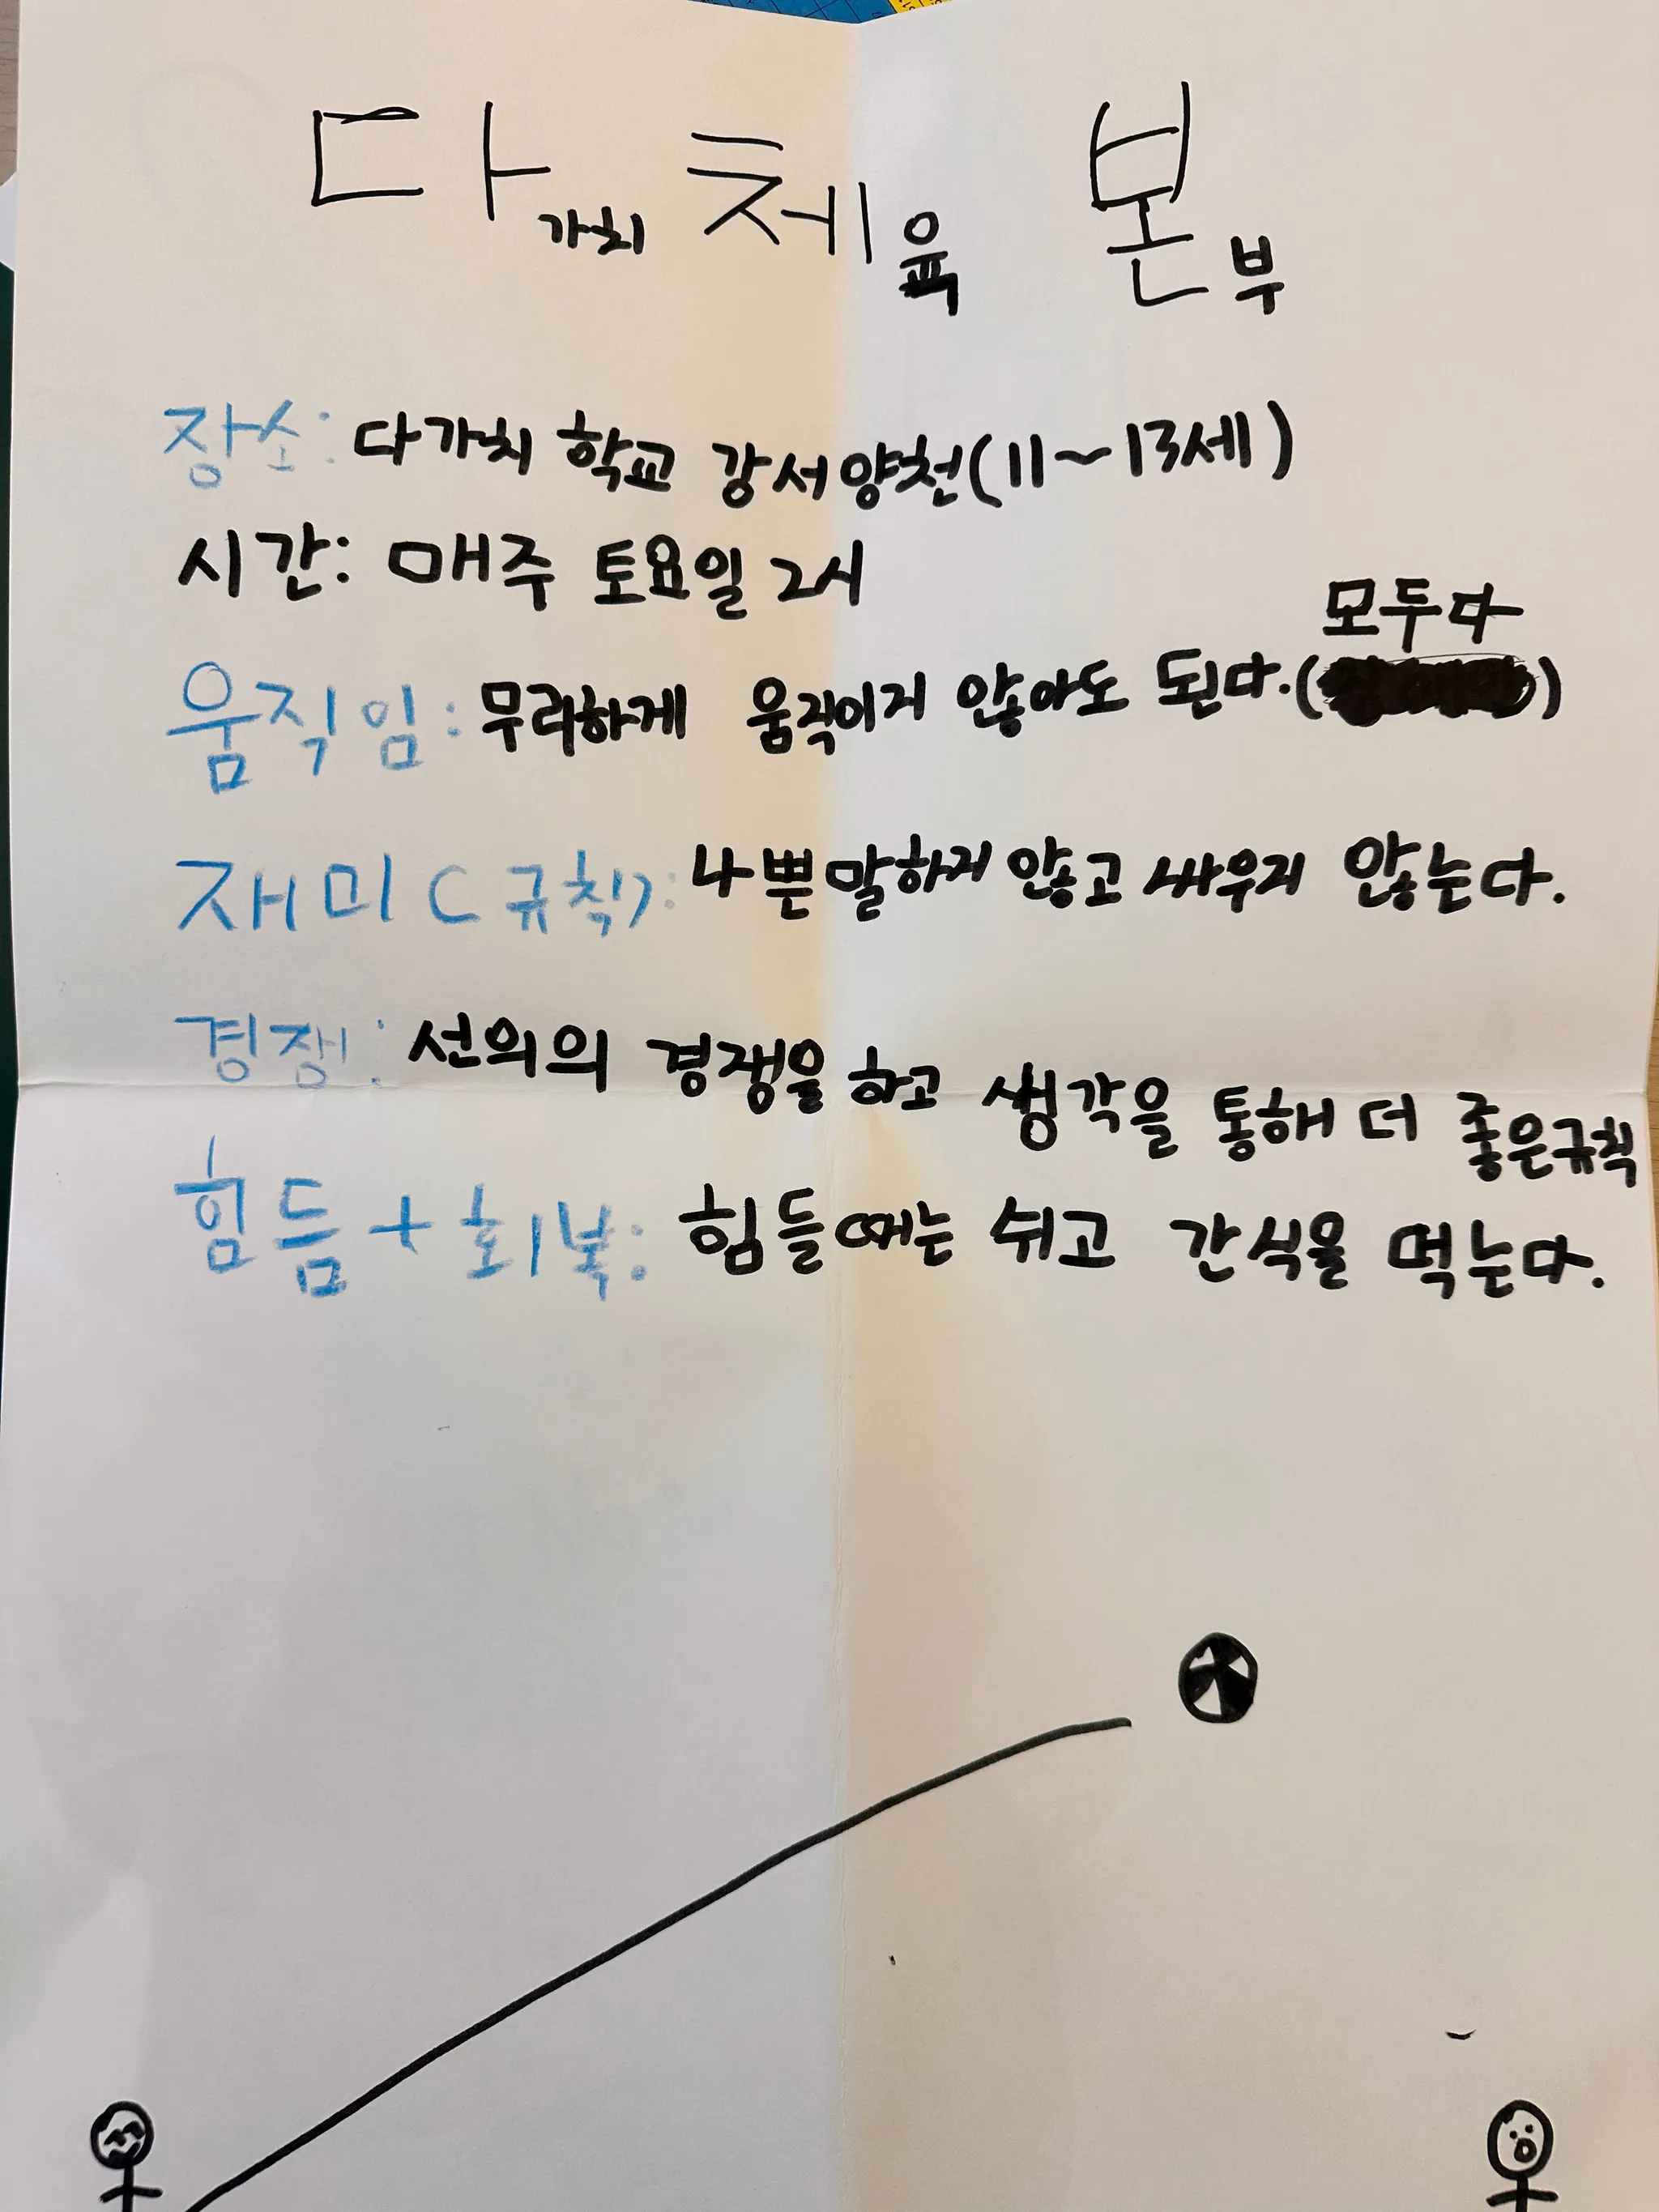 다가치 체육 본부
장소: 다가치 학교 강서양천(11~13세)
시간: 매주 토요일 2시
모두다
움직임: 무리하게 움직이지 않아도 된다.( )
재미(규칙): 나쁜말하지 않고 싸우지 않는다.
경쟁: 선의의 경쟁을 하고 생각을 통해 더 좋은규칙
힘듬+회복: 힘들때는 쉬고 간식을 먹는다.